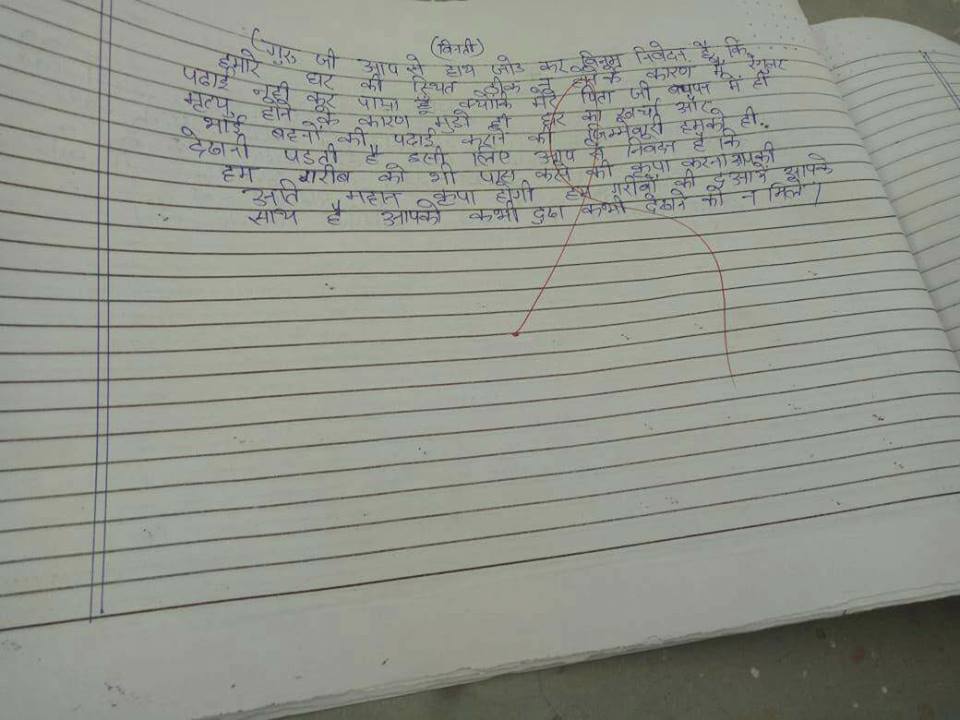 (विनती)
(गुरु जी आप से हाथ जोड कर विनम्र निवेदन है कि
हमारे घर की स्थित ठीक न होने के कारण मै रेगुलर
पढाई नही कर पाया है क्योकि मेरे पिता जी बचपन में ही
मृत्यु होने के कारण मुझे ही घर का खर्चा और
भाई बहनों की पढाई कराने की जिम्मेदारी हमको ही
देखनी पडती है इसी लिए आप से निवेदन है कि
हम गरीब को भी पास करने की कृपा करना आपकी
अति महान कृपा होगी हम गरीबों की दुआयें आपके
साथ है आपको कभी दुख कभी देखने को न मिले ।